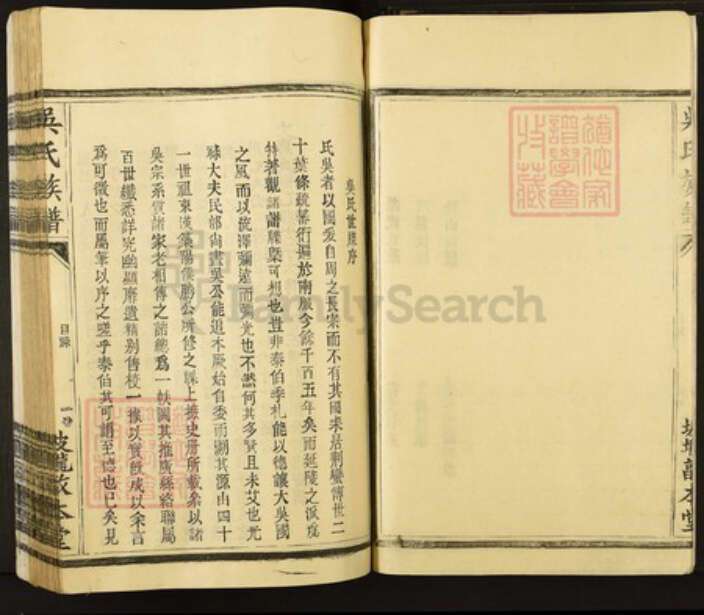 吳氏世牒序
氏吳者以國爰自周之長宗而不有其國來居荆蠻傳世二
十葉條疏蕃衍遍於南服今餘千百五年矣而延陵之派
特著觀諸譜牒槩可想也豈非泰伯季札能以德讓大吳國
之風而以流澤彌遠而彌光也不然何其多賢且未艾也光
祿大夫民部尚書吳公能追本厥始自委而溯其源由四十
一世祖東漢廣陽侯勝公所修之牒上據史册所載參以諸
吳宗系質諸家老相傳之語總爲一帙圖其推廣縣絡聯屬
百世纖悉詳究幽顯靡遺精別讐校一撥以實既成以余言
爲可徵也而屬筆以序之嗟乎泰伯其可謂至德也已矣見
吳氏族譜
目錄
一
敦本堂
吳氏族譜
敦本堂
FamilySearch